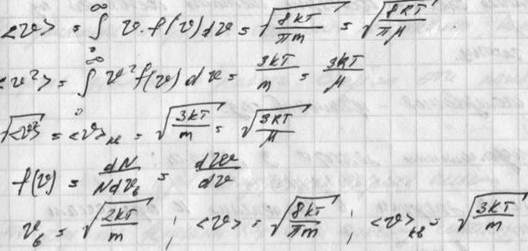 <v> = ∫₀^∞ v·f(v)dv = √(8kT/πm) = √(8kT/μ).
<v²> = ∫₀^∞ v²f(v)dv = 3kT/m = 3kT/μ
√<v²> = <v>кв = √(3kT/m) = √(3kT/μ)
f(v) = dN/Ndv = dW/dv
vв = √(2kT/m) ; <v> = √(8kT/πm) ; <v>кв = √(3kT/m)